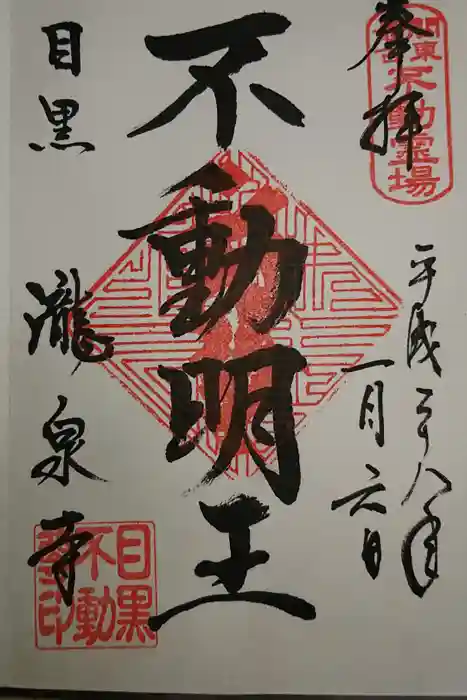 奉拝
関東不動霊場
平成二十八年
一月六日
不動明王
目黒
瀧泉寺
目黒不動